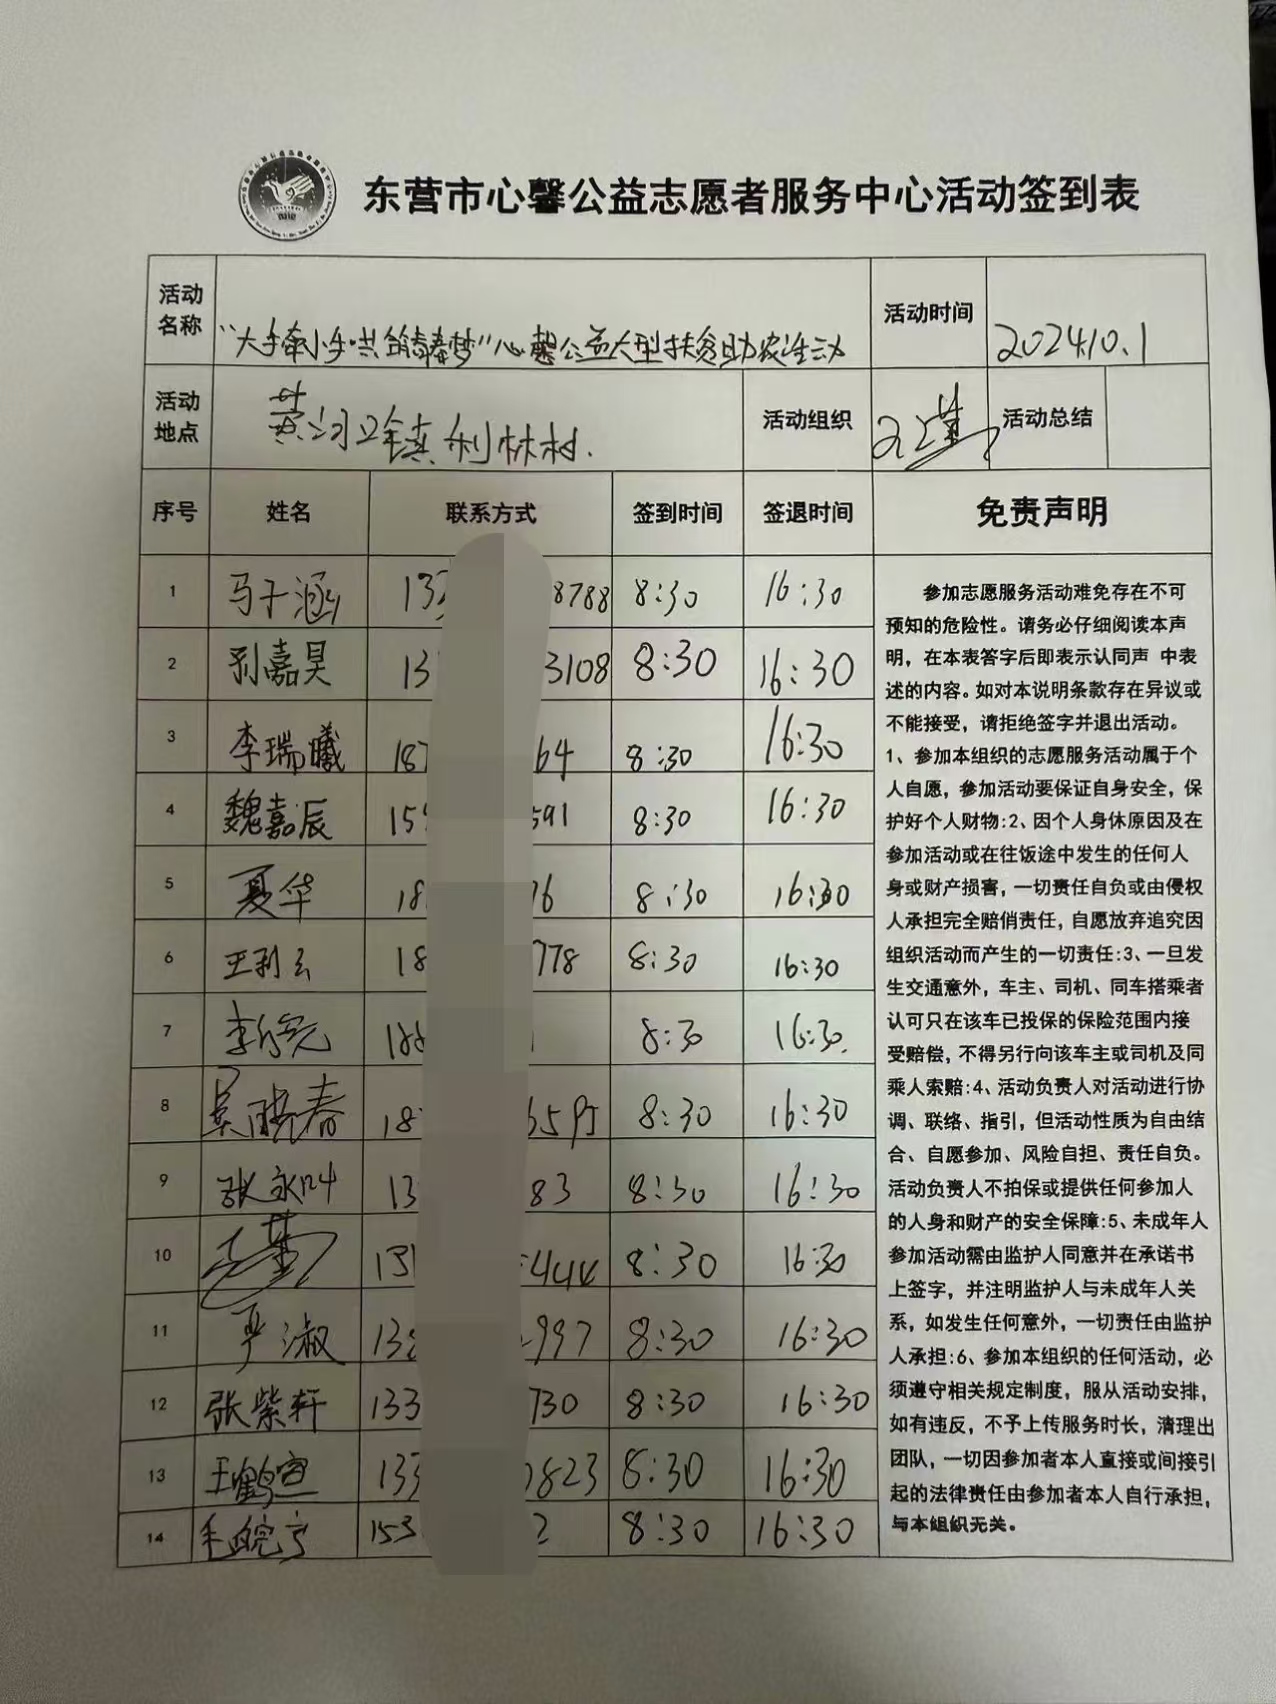 东营市心馨公益志愿者服务中心活动签到表
活动名称 "大手牵小手·共筑青春梦"心馨公益大型扶贫助农活动 活动时间 2024.10.1
活动地点 黄河口镇利林村. 活动组织 活动总结
序号 姓名 联系方式 签到时间 签退时间 免责声明
1 马子涵 13 8788 8:30 16:30
2 刘嘉昊 13 3108 8:30 16:30
3 李瑞曦 187 64 8:30 16:30
4 魏嘉辰 15 591 8:30 16:30
5 夏华 18 76 8:30 16:30
6 王利云 18 778 8:30 16:30
7 188 8:30 16:30.
8 吴晓春 18 8:30 16:30
9 张永叶 13 83 8:30 16:30
10 13 444 8:30 16:30
11 尹淑 13 997 8:30 16:30
12 张紫轩 133 730 8:30 16:30
13 王鹤宣 133 823 8:30 16:30
14 毛皖 153 2 8:30 16:30
参加志愿服务活动难免存在不可
预知的危险性。请务必仔细阅读本声
明，在本表答字后即表示认同声 中表
述的内容。如对本说明条款存在异议或
不能接受，请拒绝签字并退出活动。
1、参加本组织的志愿服务活动属于个
人自愿，参加活动要保证自身安全，保
护好个人财物:2、因个人身休原因及在
参加活动或在往饭途中发生的任何人
身或财产损害，一切责任自负或由侵权
人承担完全赔俏责任，自愿放弃追究因
组织活动而产生的一切责任:3、一旦发
生交通意外，车主、司机、同车搭乘者
认可只在该车已投保的保险范围内接
受赔偿，不得另行向该车主或司机及同
乘人索赔:4、活动负责人对活动进行协
调、联络、指引，但活动性质为自由结
合、自愿参加、风险自担、责任自负。
活动负责人不拍保或提供任何参加人
的人身和财产的安全保障:5、未成年人
参加活动需由监护人同意并在承诺书
上签字，并注明监护人与未成年人关
系，如发生任何意外，一切责任由监护
人承担:6、参加本组织的任何活动，必
须遵守相关规定制度，服从活动安排，
如有违反，不予上传服务时长，清理出
团队，一切因参加者本人直接或间接引
起的法律责任由参加者本人自行承担，
与本组织无关。